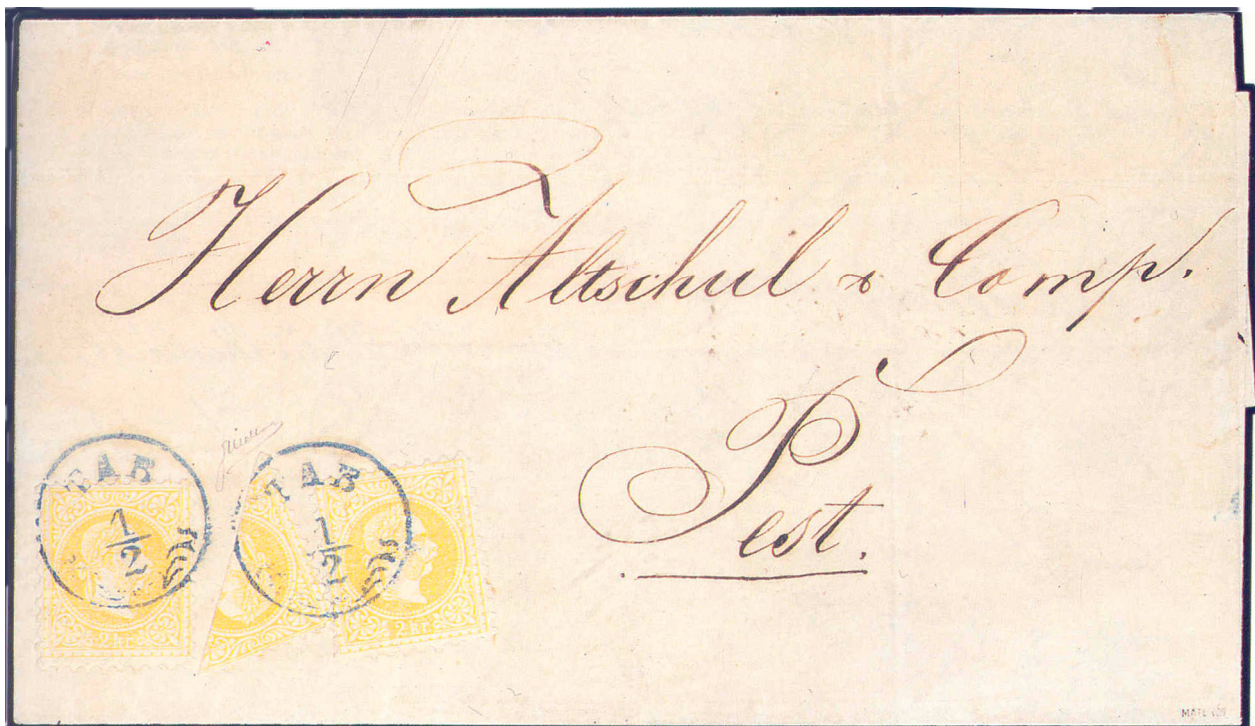 Herrn Altschul & Comp.
Pest.
TAB
1/2
TAB
1/2
2 kr.
2 kr.